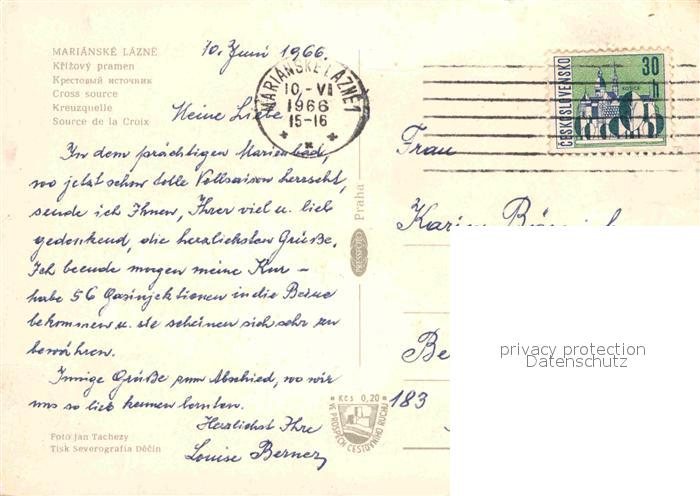 MARIÁNSKÉ LÁZNĚ
Křížový pramen
Крестовый источник
Cross source
Kreuzquelle
Source de la Croix
10. Juni 1966.
MARIÁNSKÉ LÁZNĚ 1
10.-VI
1966
15-16
ČESKOSLOVENSKO
30 h
KOŠICE
Meine Liebe
In dem prächtigen Marienbad,
wo jetzt schon tolle Vollsaison herrscht,
sende ich Ihnen, Ihrer viel u. lieb
gedenkend, die herzlichsten Grüße.
Ich beende morgen meine Kur –
habe 56 Gasinjektionen in die Beine
bekommen u. sie scheinen sich sehr zu
bewähren.
Innige Grüße zum Abschied, wo wir
uns so lieb kennen lernten.
Herzlichst Ihre
Louise Berner
Foto Jan Tachezy
Tisk Severografia Děčín
Praha
PRESSFOTO
Kčs 0,20
VE PROSPĚCH CESTOVNÍHO RUCHU
Frau
Karin
Be
183
privacy protection
Datenschutz